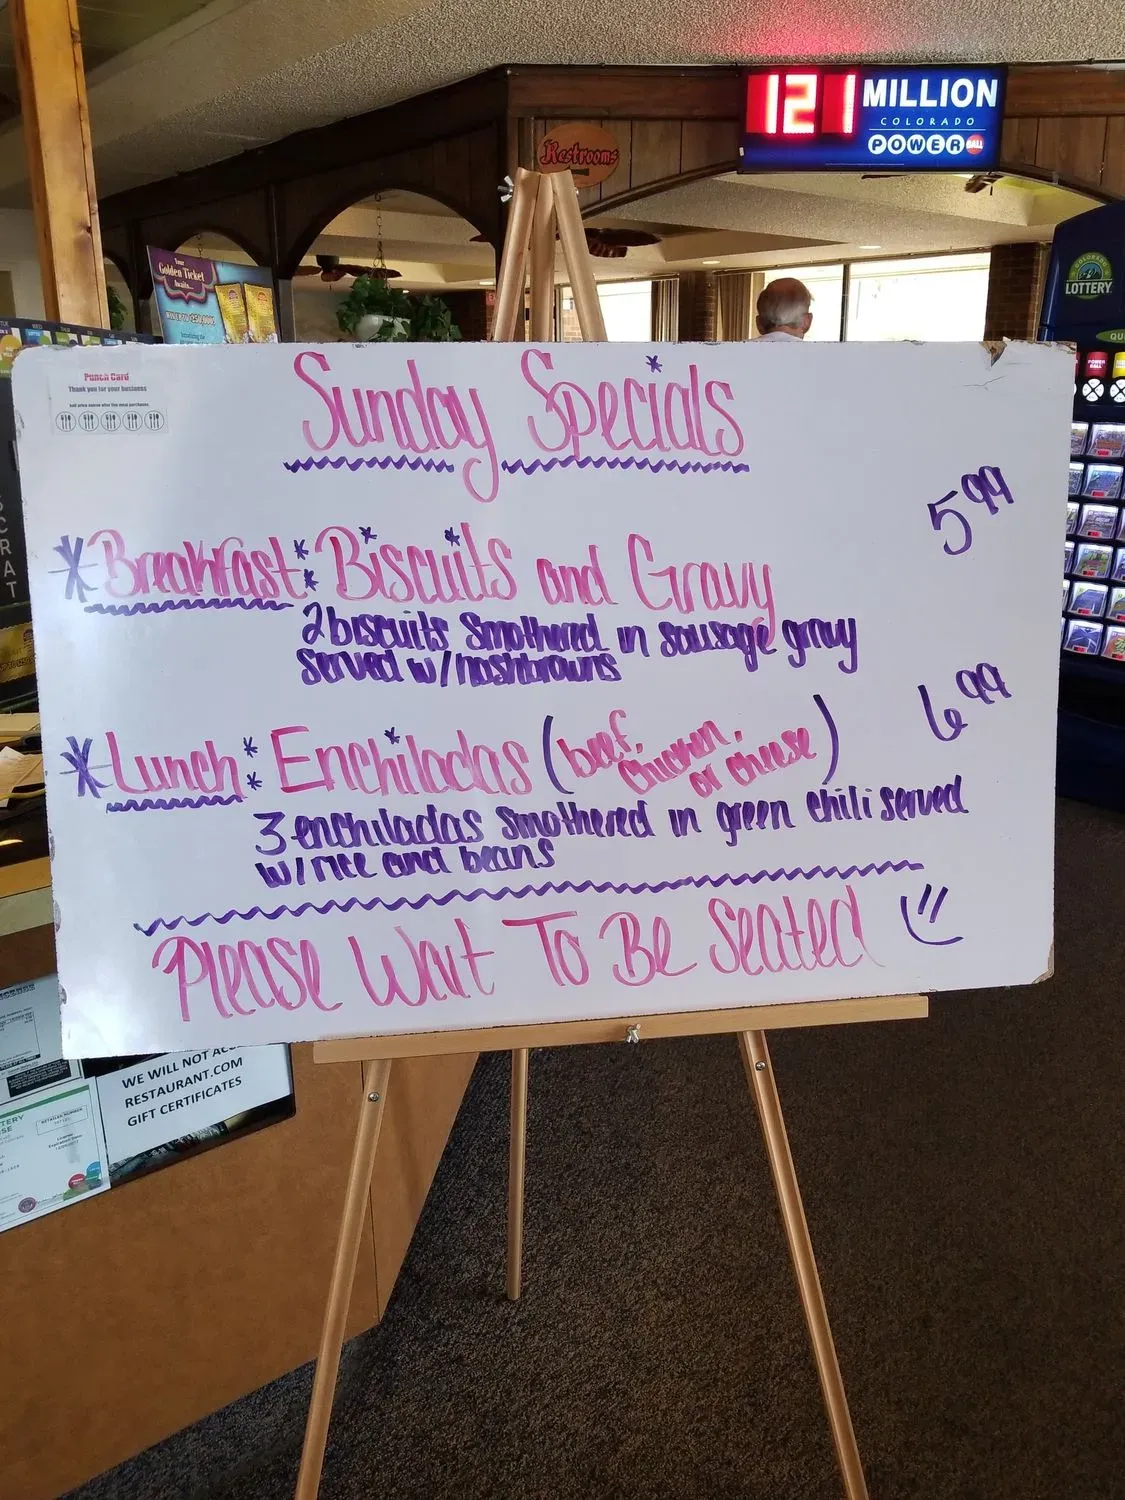 121 MILLION
COLORADO
POWERBALL
Restrooms
Your
Golden Ticket
Awaits...
COLORADO
LOTTERY
Punch Card
Thank you for your business
Sunday Specials
5 99
*Breakfast: Biscuits and Gravy
2 biscuits smothered in sausage gravy
served w/ hashbrowns
6 99
*Lunch: Enchiladas (beef,
chicken,
or cheese)
3 enchiladas smothered in green chili served
w/ rice and beans
Please Wait To Be Seated
WE WILL NOT
RESTAURANT.COM
GIFT CERTIFICATES